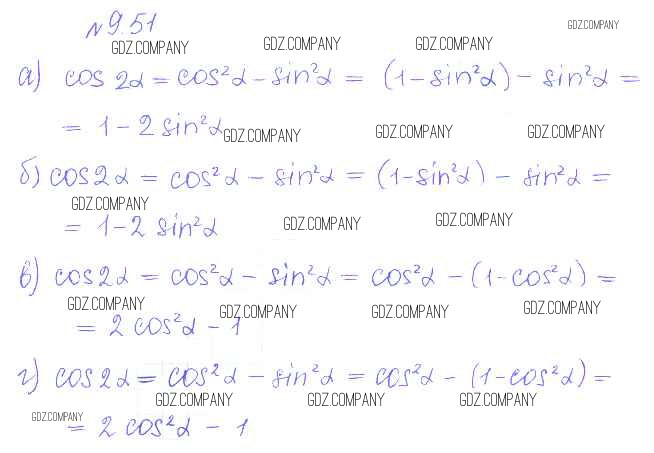 №9.51
GDZ.COMPANY GDZ.COMPANY GDZ.COMPANY GDZ.COMPANY
а) cos 2α = cos²α – sin²α = (1 – sin²α) – sin²α =
= 1 – 2 sin²α
GDZ.COMPANY GDZ.COMPANY GDZ.COMPANY
б) cos 2α = cos²α – sin²α = (1 – sin²α) – sin²α =
GDZ.COMPANY GDZ.COMPANY GDZ.COMPANY
= 1 – 2 sin²α
в) cos 2α = cos²α – sin²α = cos²α – (1 – cos²α) =
GDZ.COMPANY GDZ.COMPANY GDZ.COMPANY GDZ.COMPANY
= 2 cos²α – 1
г) cos 2α = cos²α – sin²α = cos²α – (1 – cos²α) =
GDZ.COMPANY GDZ.COMPANY GDZ.COMPANY GDZ.COMPANY
= 2 cos²α – 1